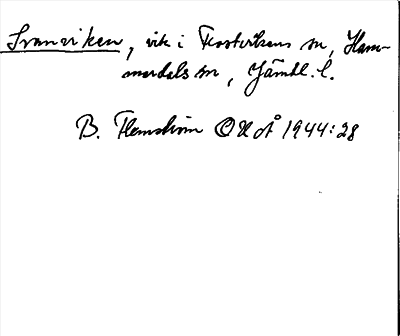 Svanviken, vik i Kostvikens sn, Ham-
merdals sn, Jämtl. l.
B. Flemström OUÅ 1944:28